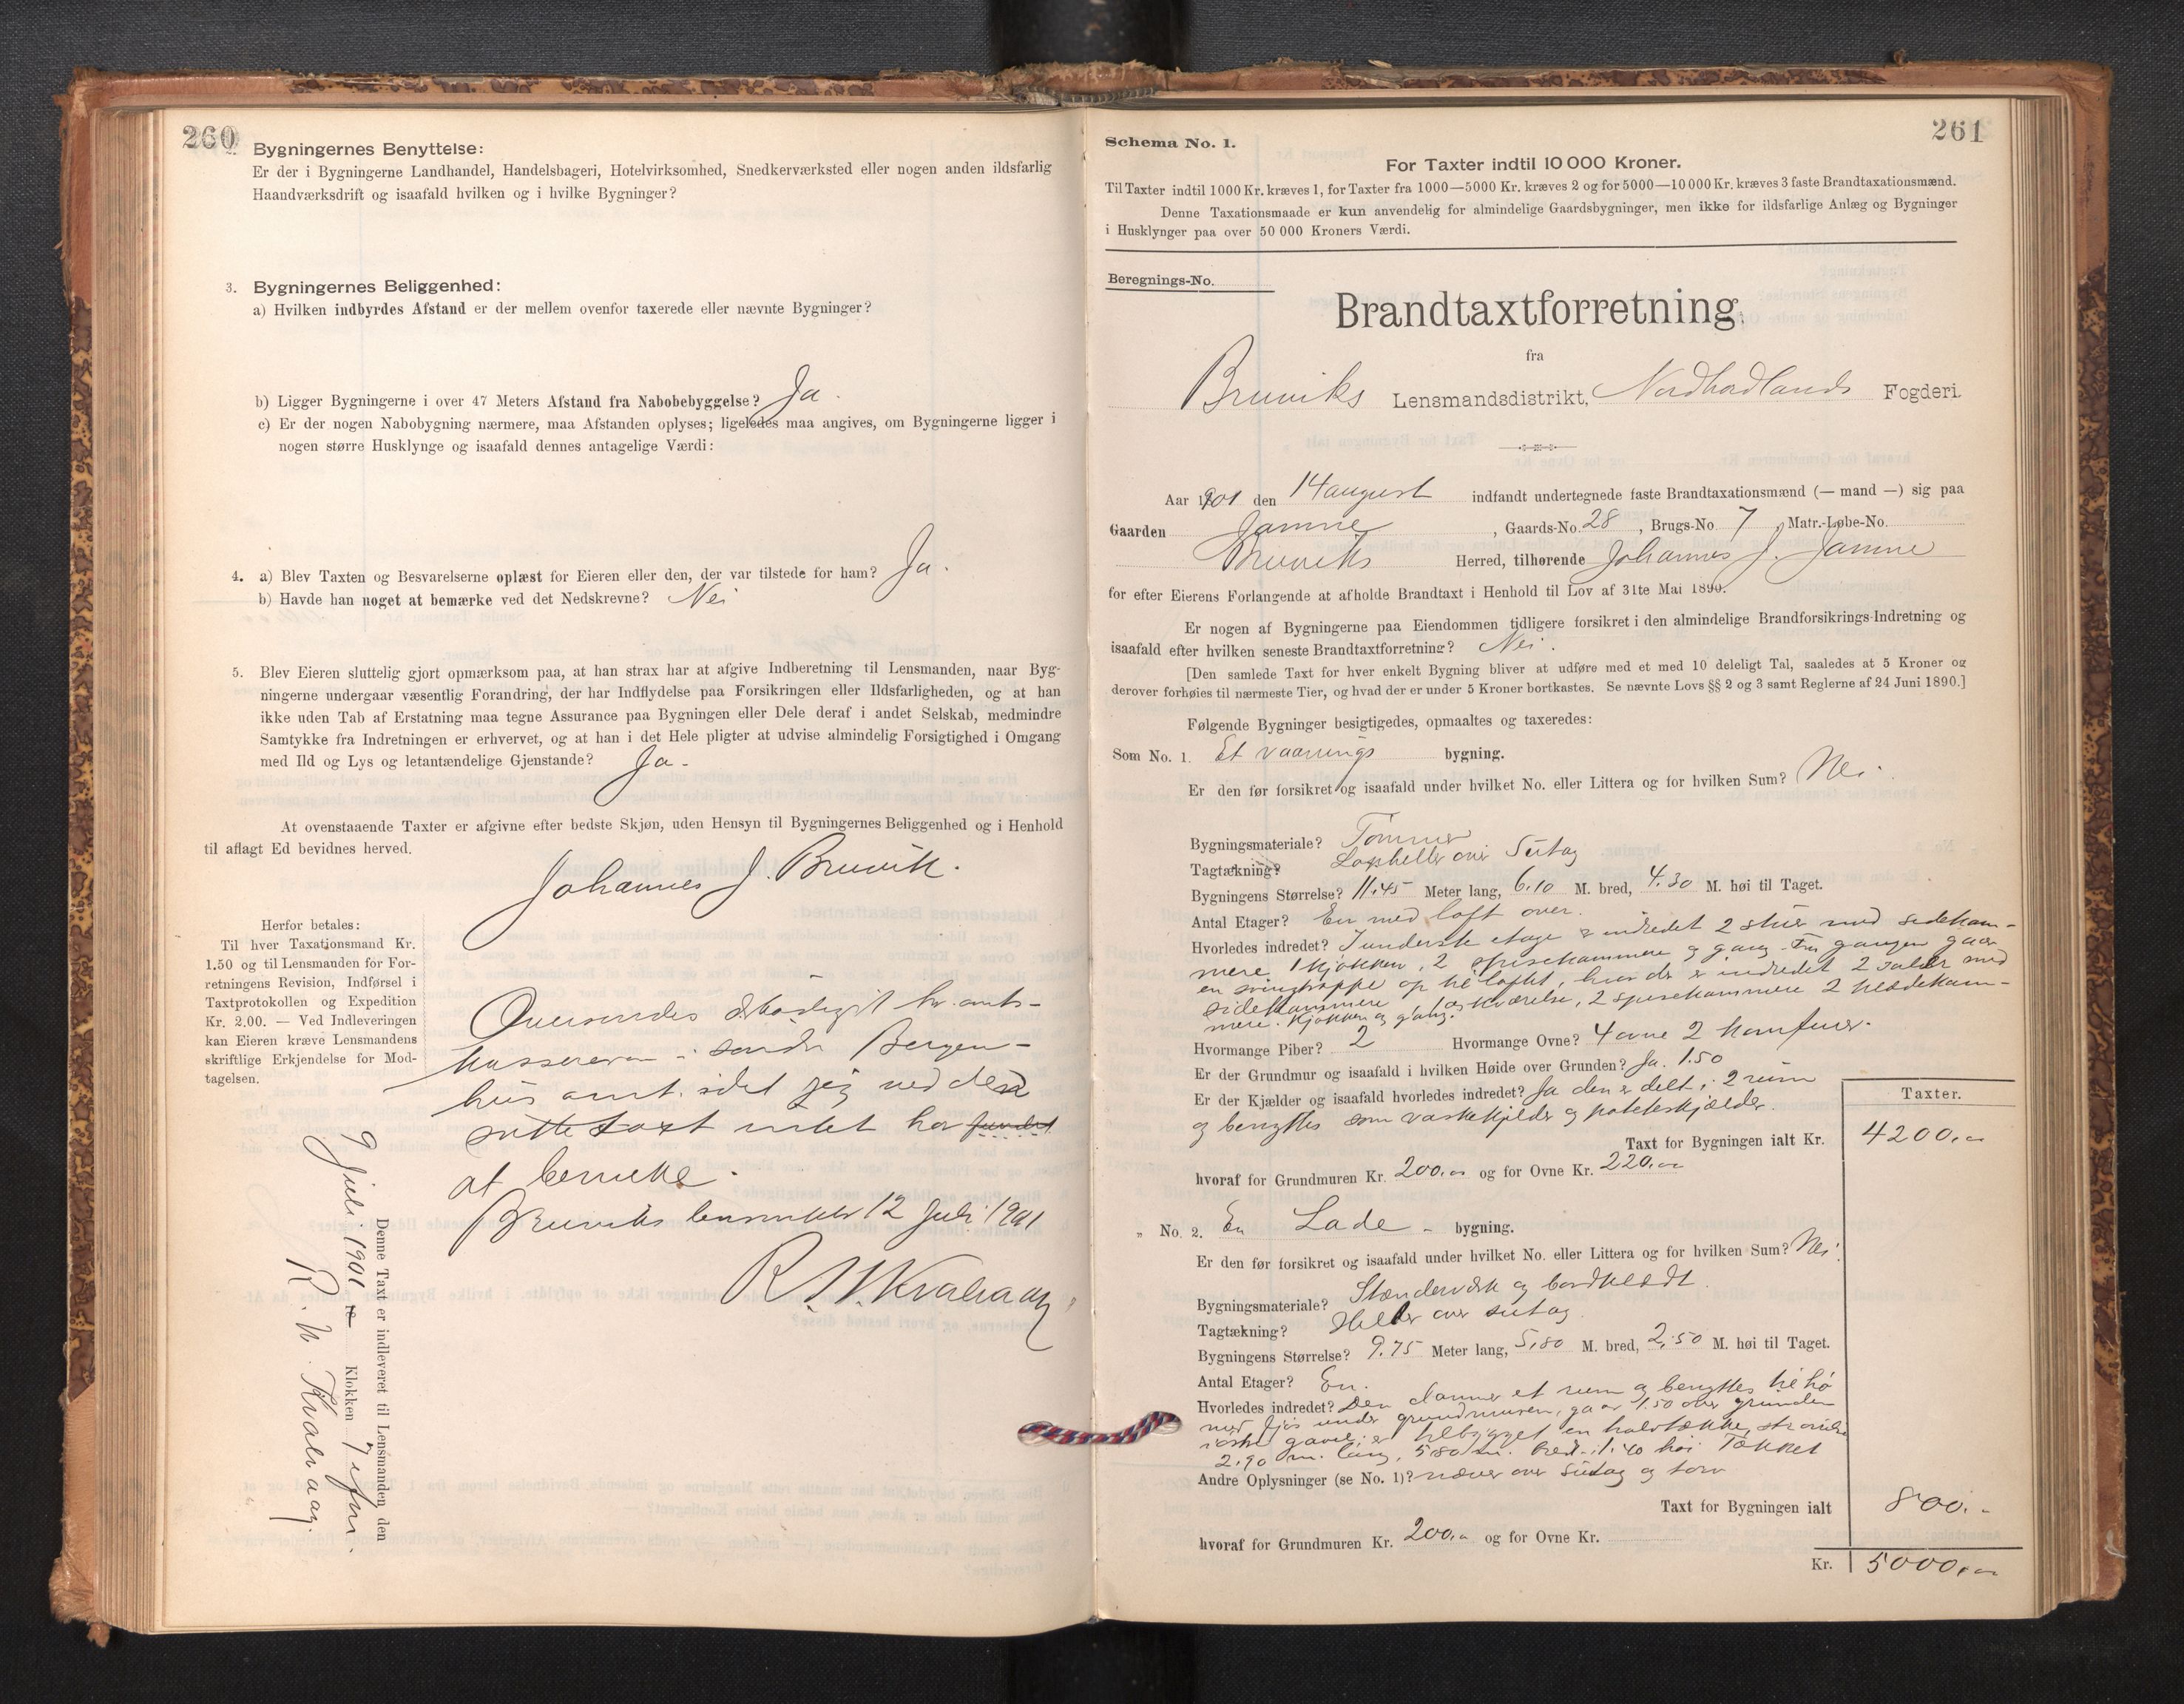 260
Bygningernes Benyttelse:
Er der i Bygningerne Landhandel, Handelsbageri, Hotelvirksomhed, Snedkerværksted eller nogen anden ildsfarlig
Haandværksdrift og isaafald hvilken og i hvilke Bygninger?
3. Bygningernes Beliggenhed:
a) Hvilken indbyrdes Afstand er der mellem ovenfor taxerede eller nævnte Bygninger?
b) Ligger Bygningerne i over 47 Meters Afstand fra Nabobebyggelse? Ja.
c) Er der nogen Nabobygning nærmere, maa Afstanden oplyses; ligeledes maa angives, om Bygningerne ligger i
nogen større Husklynge og isaafald dennes antagelige Værdi:
4. a) Blev Taxten og Besvarelserne oplæst for Eieren eller den, der var tilstede for ham? Ja.
b) Havde han noget at bemærke ved det Nedskrevne? Nei
5. Blev Eieren sluttelig gjort opmærksom paa, at han strax har at afgive Indberetning til Lensmanden, naar Byg-
ningerne undergaar væsentlig Forandring, der har Indflydelse paa Forsikringen eller Ildsfarligheden, og at han
ikke uden Tab af Erstatning maa tegne Assurance paa Bygningen eller Dele deraf i andet Selskab, medmindre
Samtykke fra Indretningen er erhvervet, og at han i det Hele pligter at udvise almindelig Forsigtighed i Omgang
med Ild og Lys og letantændelige Gjenstande? Ja.
At ovenstaaende Taxter er afgivne efter bedste Skjøn, uden Hensyn til Bygningernes Beliggenhed og i Henhold
til aflagt Ed bevidnes herved.
Johannes J. Bruvik.
Herfor betales:
Til hver Taxationsmand Kr.
1.50 og til Lensmanden for For-
retningens Revision, Indførsel i
Taxtprotokollen og Expedition
Kr. 2.00. — Ved Indleveringen
kan Eieren kræve Lensmandens
skriftlige Erkjendelse for Mod-
tagelsen.
Oversendes hr. amts-
kassereren i søndre Bergen-
hus amt idet jeg ved denne
taxt intet har fundet
at bemerke.
Bruviks 12 Juli 1901
R. N. Kvalvaag
Denne Taxt er indleveret til Lensmanden den
9 Juli 1901 Klokken 7 efm.
R. N. Kvalvaag.
261
Schema No. 1.
For Taxter indtil 10 000 Kroner.
Til Taxter indtil 1000 Kr. kræves 1, for Taxter fra 1000—5000 Kr. kræves 2 og for 5000—10 000 Kr. kræves 3 faste Brandtaxationsmænd.
Denne Taxationsmaade er kun anvendelig for almindelige Gaardsbygninger, men ikke for ildsfarlige Anlæg og Bygninger
i Husklynger paa over 50 000 Kroners Værdi.
Beregnings-No.
Brandtaxtforretning.
fra
Bruviks Lensmandsdistrikt, Nordhordlands Fogderi.
Aar 1901 den 14 august indfandt undertegnede faste Brandtaxationsmænd (— mand —) sig paa
Gaarden Jamne, Gaards-No. 28, Brugs-No. 7, Matr.-Løbe-No.
Bruviks Herred, tilhørende Johannes J. Jamne
for efter Eierens Forlangende at afholde Brandtaxt i Henhold til Lov af 31te Mai 1890.
Er nogen af Bygningerne paa Eiendommen tidligere forsikret i den almindelige Brandforsikrings-Indretning og
isaafald efter hvilken seneste Brandtaxtforretning? Nei.
[Den samlede Taxt for hver enkelt Bygning bliver at udføre med et med 10 deleligt Tal, saaledes at 5 Kroner og
derover forhøies til nærmeste Tier, og hvad der er under 5 Kroner bortkastes. Se nævnte Lovs §§ 2 og 3 samt Reglerne af 24 Juni 1890.]
Følgende Bygninger besigtigedes, opmaaltes og taxeredes:
Som No. 1. Et vaanings bygning.
Er den før forsikret og isaafald under hvilket No. eller Littera og for hvilken Sum? Nei.
Bygningsmateriale? Tømmer
Tagtækning? heller over Sutag
Bygningens Størrelse? 11.45 Meter lang, 6.10 M. bred, 4.30 M. høi til Taget.
Antal Etager? En med loft over.
Hvorledes indredet? I underste etage er indredet 2 stuer med sidekam-
mere, 1 kjøkken, 2 spisekammere og gang. Fra gangen gaar
en svingtrappe op til loftet, hvor der er indredet 2 saler med
sidekammere, 2 spisekammere 2 klædekam-
mere. Kjøkken og gang.
Hvormange Piber? 2 Hvormange Ovne? 4 ovne 2 komfurer.
Er der Grundmur og isaafald i hvilken Høide over Grunden? Ja. 1.50
Er der Kjælder og isaafald hvorledes indredet? Ja den er delt i 2 rum
og benyttes som vaskekjelder og poteteskjælder.
Taxter.
Taxt for Bygningen ialt Kr. 4200.00
hvoraf for Grundmuren Kr. 200.00 og for Ovne Kr. 220.00
„ No. 2. En Lade - bygning.
Er den før forsikret og isaafald under hvilket No. eller Littera og for hvilken Sum? Nei.
Bygningsmateriale? Stænderværk og bordklædt.
Tagtækning? Heller over sutag.
Bygningens Størrelse? 9.75 Meter lang, 5.80 M. bred, 2.50 M. høi til Taget.
Antal Etager? En.
Hvorledes indredet? Den danner et rum og benyttes til hø
med fjøs under grundmuren, gaar 1.50 over grunden
gavl er tilbygget en
2.90 m. lang, 5.80 m. bred. 1.40 høi Tækket
Andre Oplysninger (se No. 1)? næver over Sutag og torv
Taxt for Bygningen ialt 800.-
hvoraf for Grundmuren Kr. 200.00 og for Ovne Kr.
Kr. 5000.00